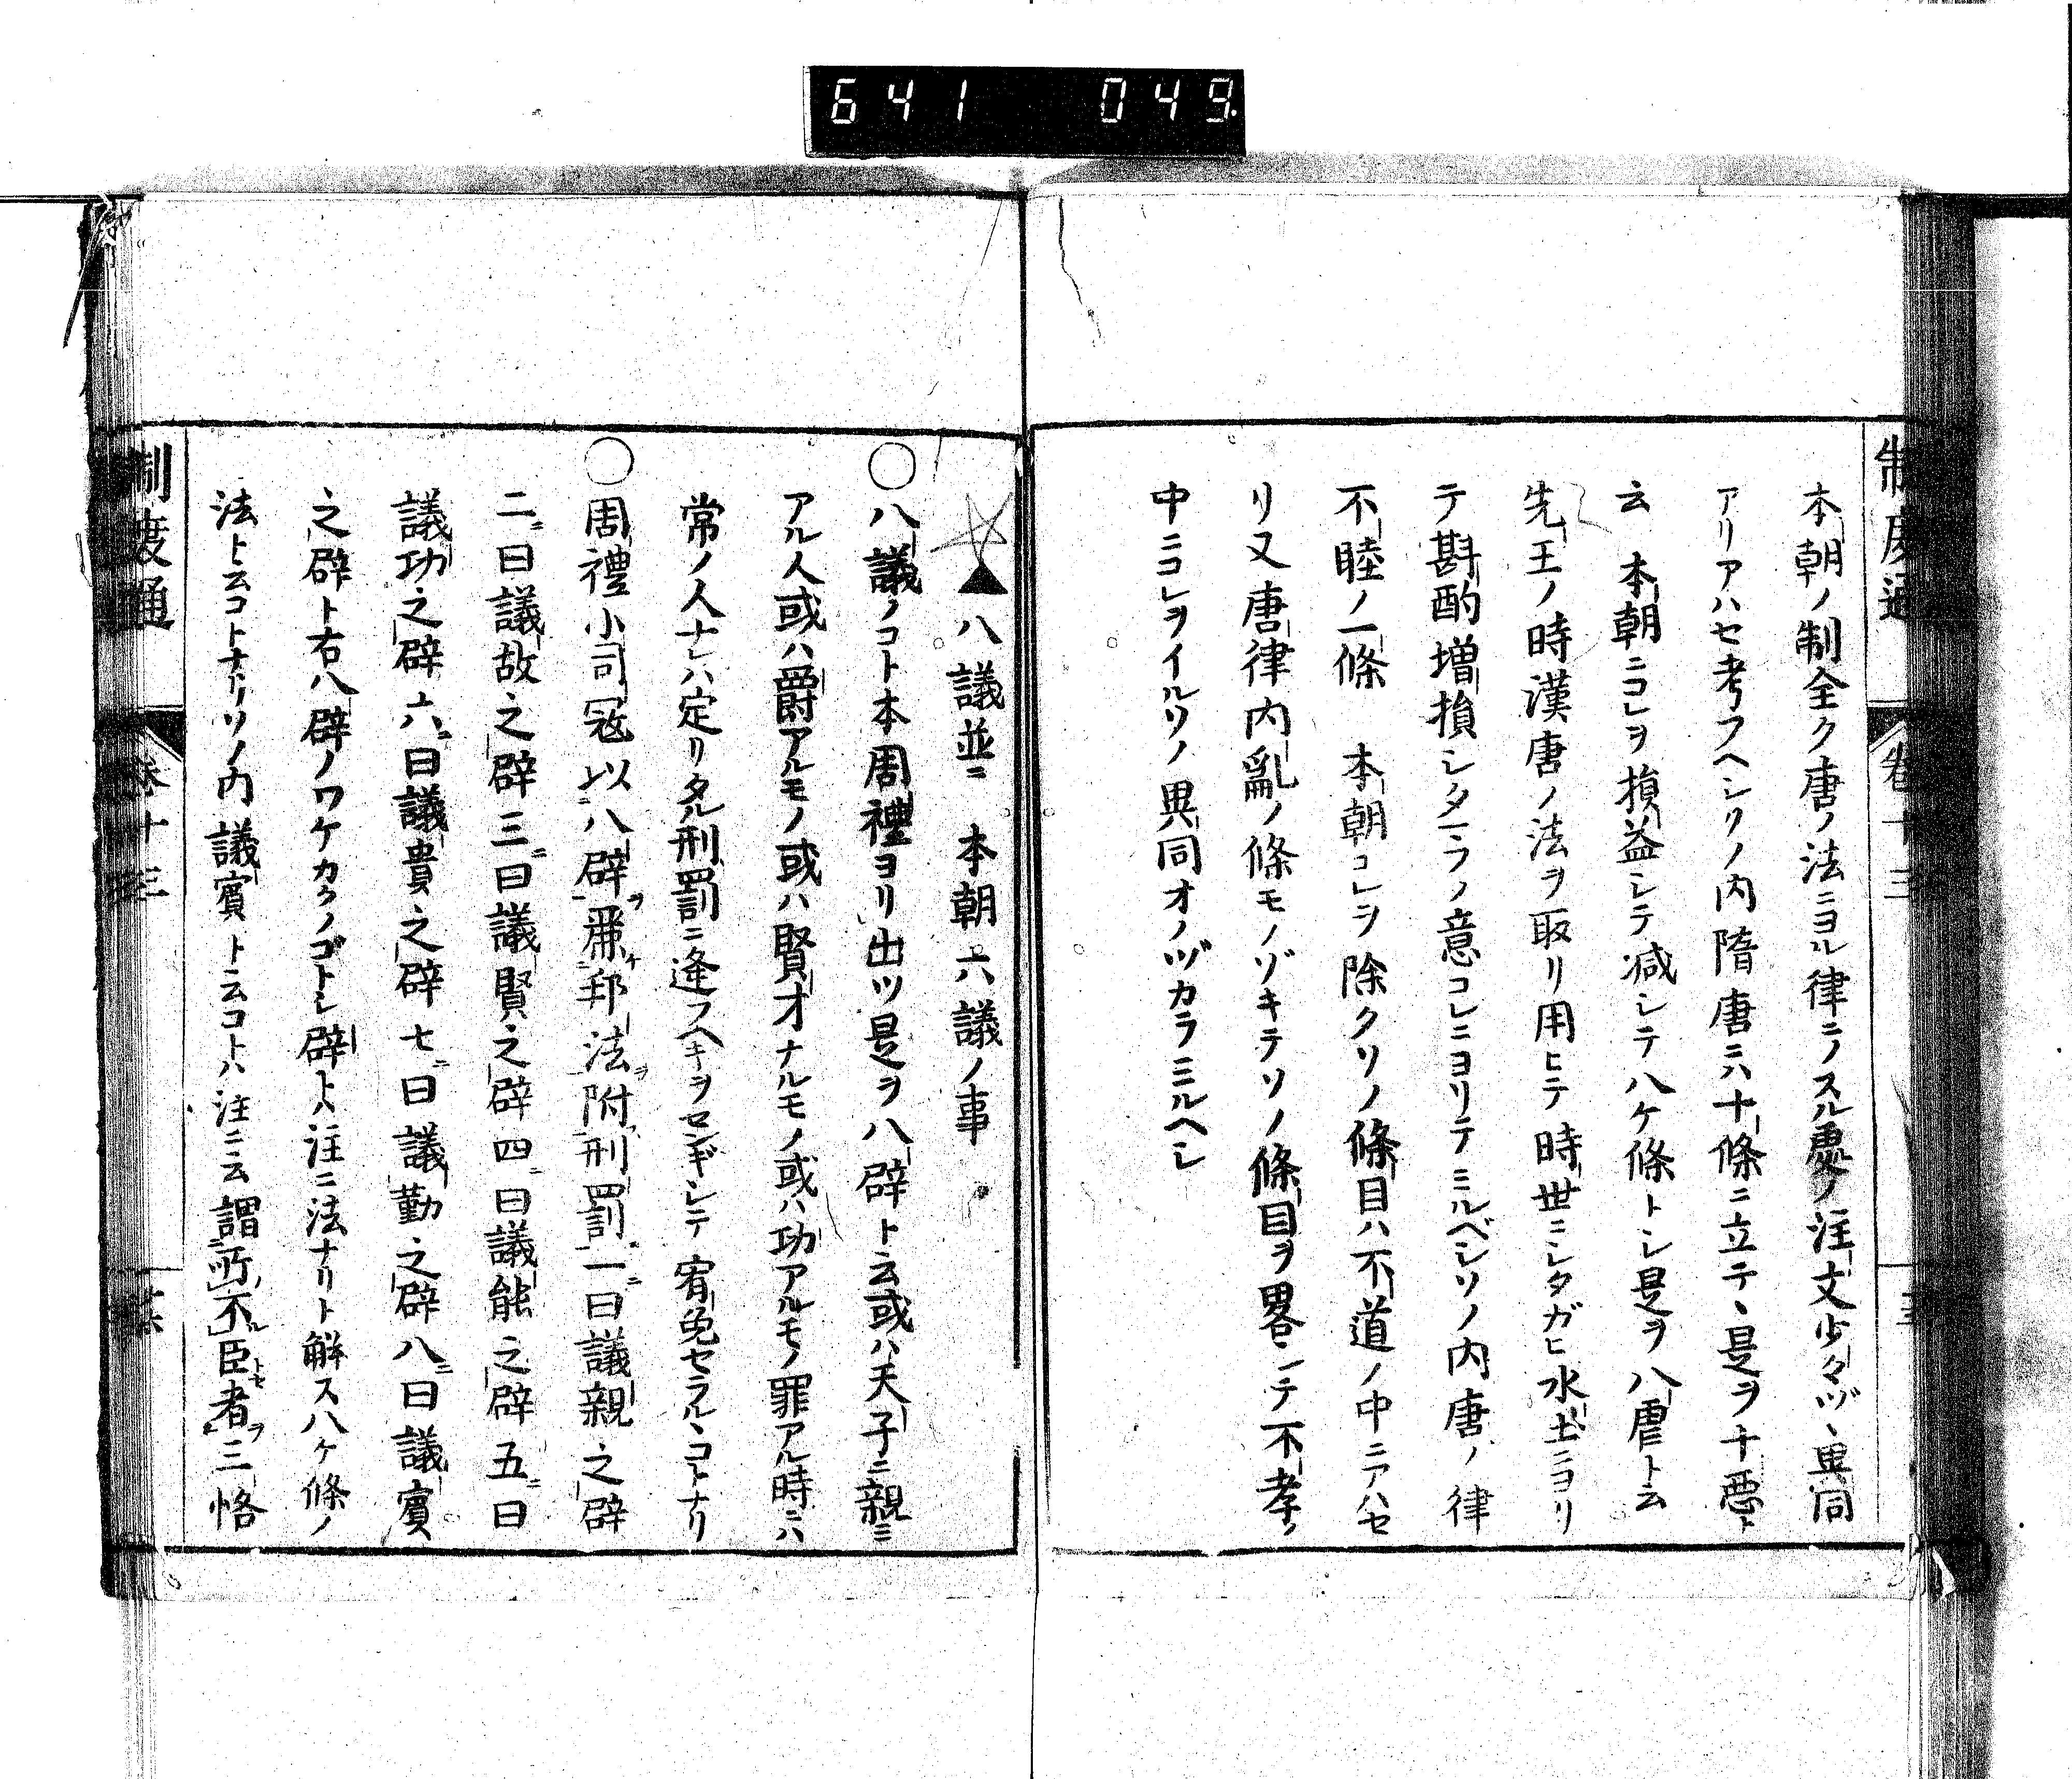 641 049
制度通 卷十三
本朝ノ制全ク唐ノ法ニヨル律ニノスル處ノ注文少々ヅヽ異同
アリアハセ考フヘシソノ内隋唐ニハ十條ニ立テヽ是ヲ十惡ト
云 本朝ニコレヲ損益シテ減シテ八ケ條トシ是ヲ八虐ト云
先王ノ時漢唐ノ法ヲ取リ用ヒテ時世ニシタガヒ水土ニヨリ
テ斟酌増損シタマフノ意コレニヨリテミルベシソノ内唐ノ律
不睦ノ一條 本朝コレヲ除クソノ條目ハ不道ノ中ニアハセ
リ又唐律内亂ノ條モノゾキテソノ條目ヲ畧シテ不孝ノ
中ニコレヲイルソノ異同オノヅカラミルヘシ
▲八議並ニ 本朝六議ノ事
○八議ノコト本周禮ヨリ出ツ是ヲ八辟ト云或ハ天子ニ親ミ
アル人或ハ爵アルモノ或ハ賢才ナルモノ或ハ功アルモノ罪アル時ニハ
常ノ人ナレハ定リタル刑罰ニ逢フヘキヲセンギシテ宥免セラルヽコトナリ
○周禮小司冦以八辟ヲ麗ケ邦法ヲ附刑罰一ニ曰議親之辟
二ニ曰議故之辟三ニ曰議賢之辟四ニ曰議能之辟五ニ曰
議功之辟六ニ曰議貴之辟七ニ曰議勤之辟八ニ曰議賓
之辟ト右八辟ノワケカクノゴトシ辟トハ注ニ法ナリト解ス八ケ條ノ
法ト云コトナリソノ内議賓ト云コトハ注ニ云謂所不ル臣トセ者ヲ三恪
制度通 卷十三